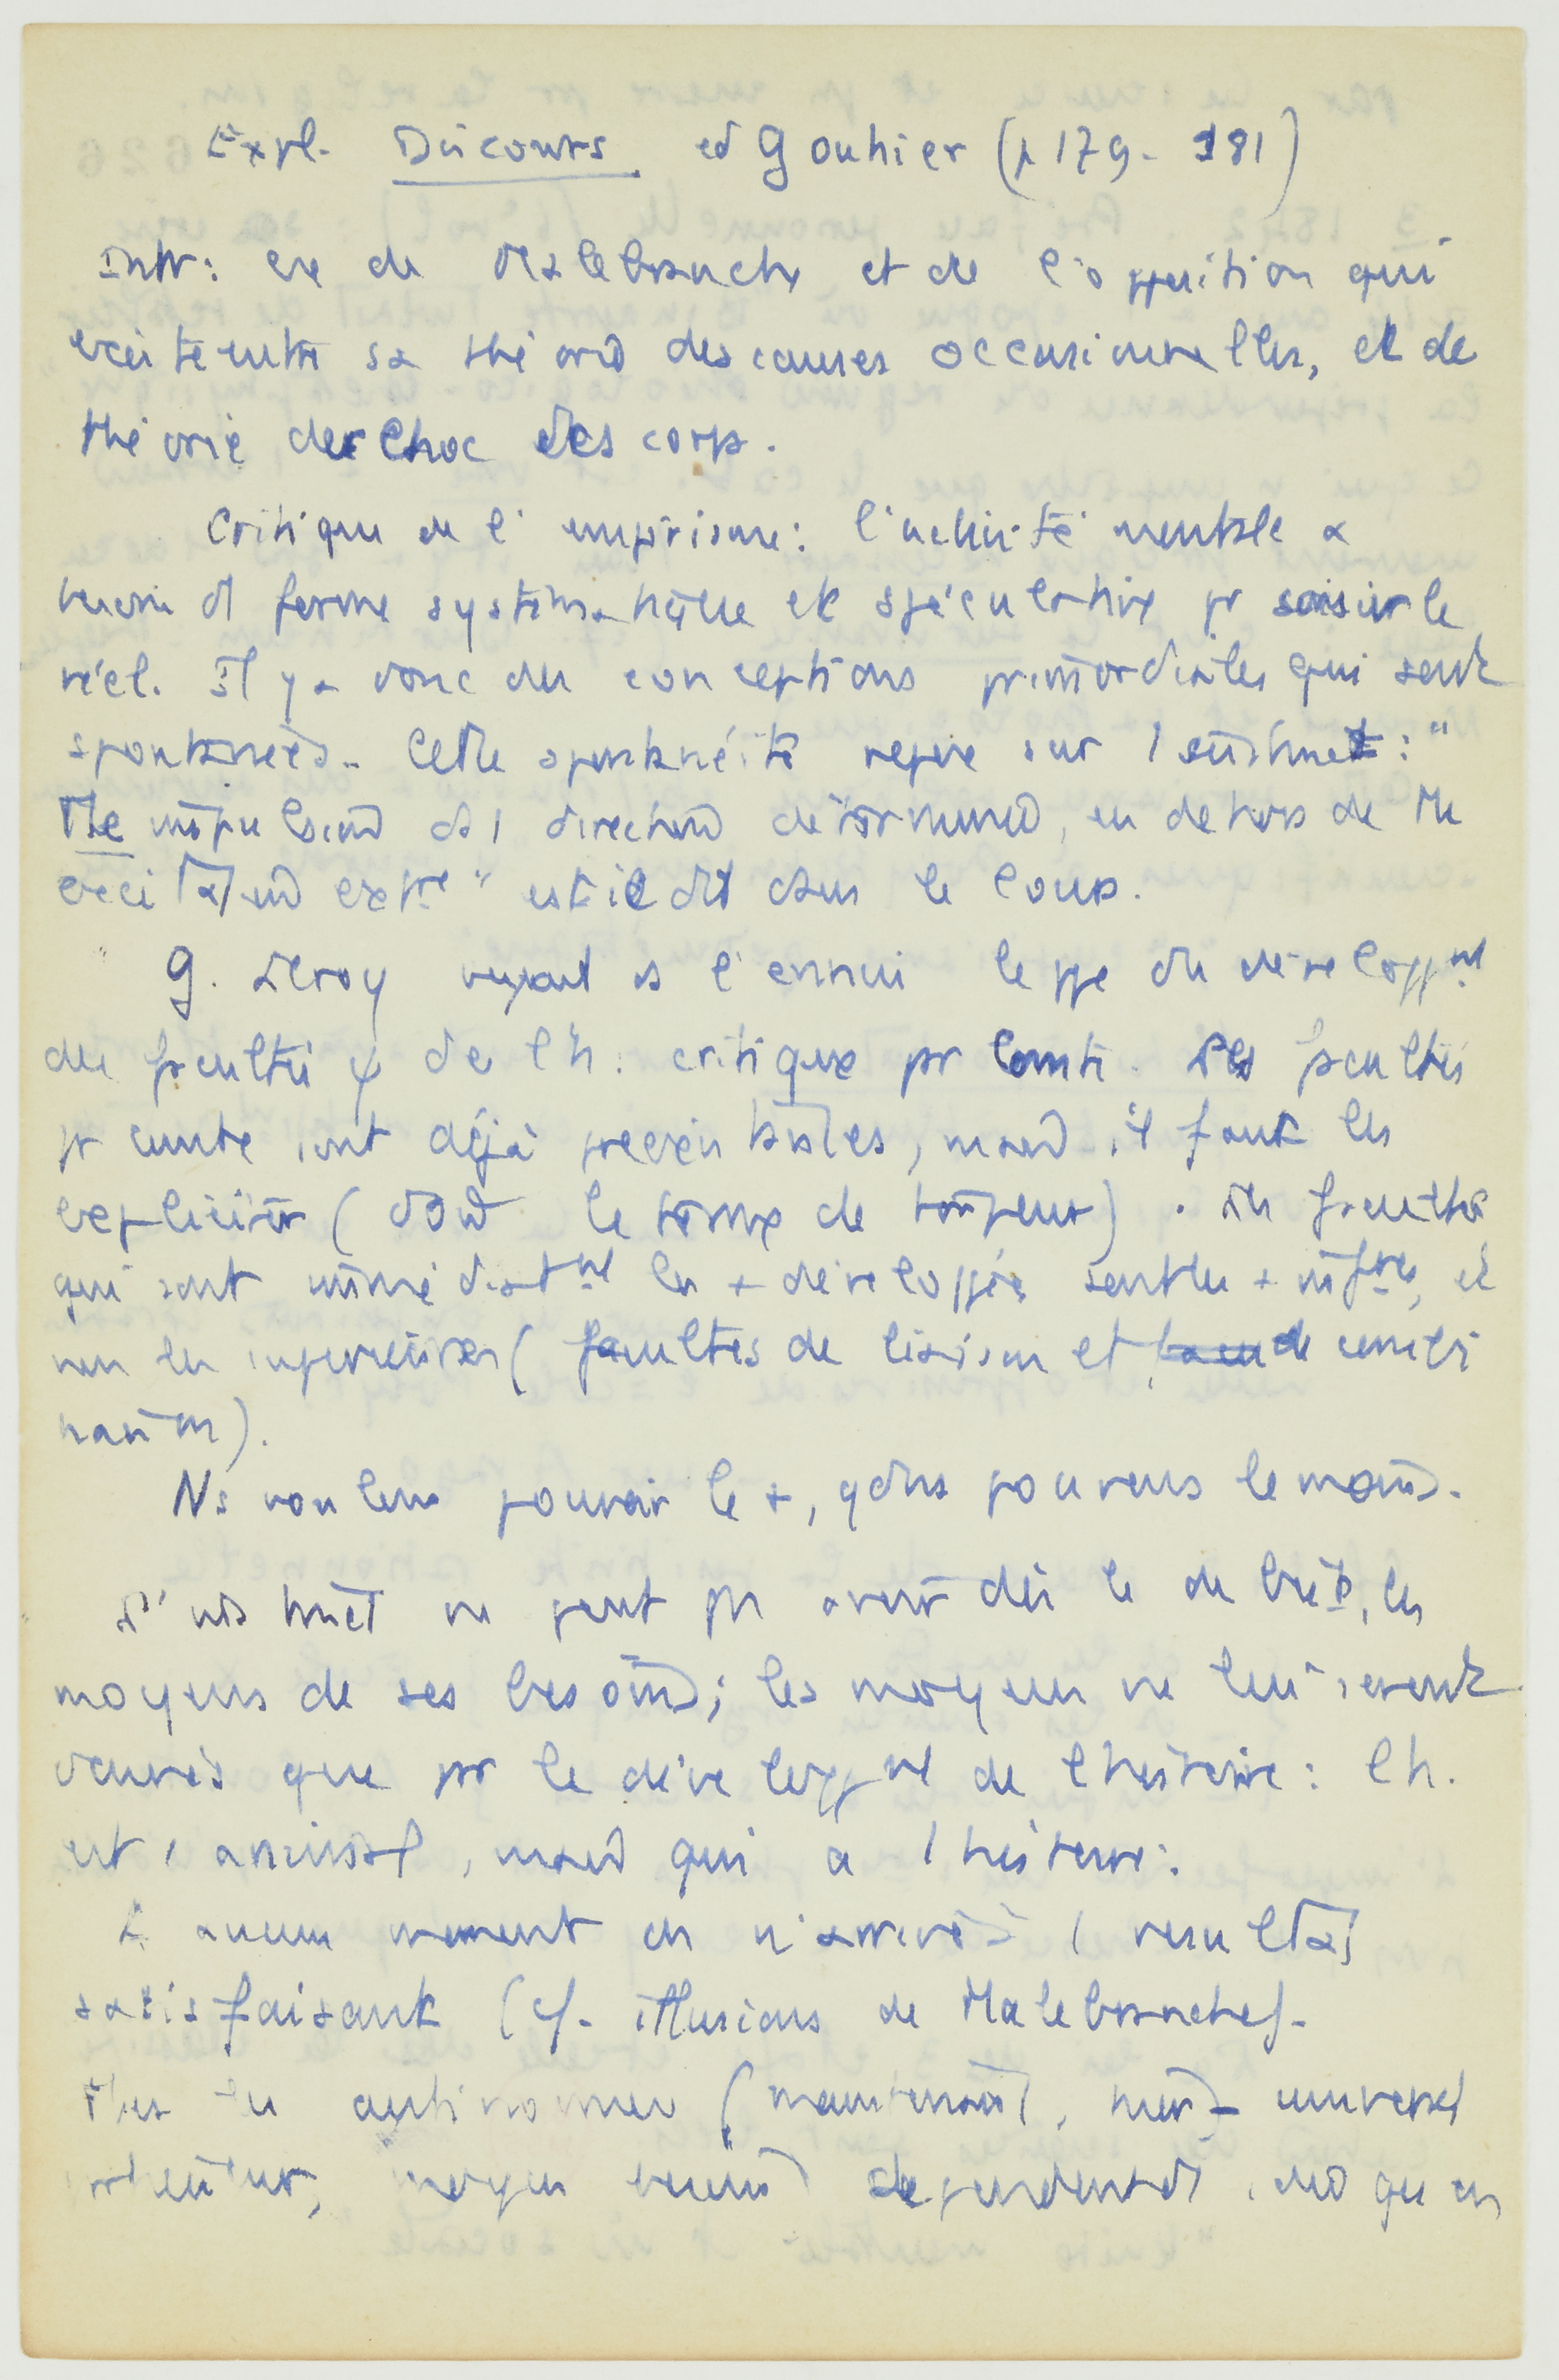 Expl. Discours ed Gouhier (p 179-181)
Intr: ex de Malebranche et de l'opposition qui
existe entre sa théorie des causes occasionnelles, et de
théorie des choc des corps.
Critique de l'empirisme: l'activité mentale a
besoin d' forme systématique et spéculative pr saisir le
réel. Il y a donc des conceptions primordiales qui sont
spontanées. Cette spontanéité repose sur l'instinct: "
Tte impulsion ds 1 direction déterminée, en dehors de tte
excitation extre" est-il dit dans le cours.
G. Leroy voyait ds l'ennui le ppe du développnt
des facultés φ de l'h. critique par Comte. Les facultés
pr Comte sont déjà préexistantes, mais il faut les
expliciter (d'où le terme de torpeur). Les facultés
qui sont immédiatnt les + développées sont les + infres, et
non les supérieures (facultés de liaison et de combi
naison).
Ns voulons pouvoir le +, qd ns pouvons le moins.
L'instinct ne peut pas avoir dès le début, les
moyens de ses besoins; les moyens ne lui seront
donnés que par le développnt de l'histoire: l'h.
est 1 animal, mais qui a 1 histoire.
A aucun moment on n'arrive à 1 résultat
satisfaisant (cf. illusions de Malebranche).
antinomies (maintenant,
moyen